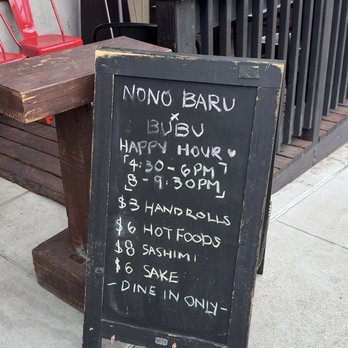 NONO BARU
x
BUBU
HAPPY HOUR ♥
4:30-6PM
8-9:30PM
$3 HANDROLLS
$6 HOT FOODS
$8 SASHIMI
$6 SAKE
- DINE IN ONLY -